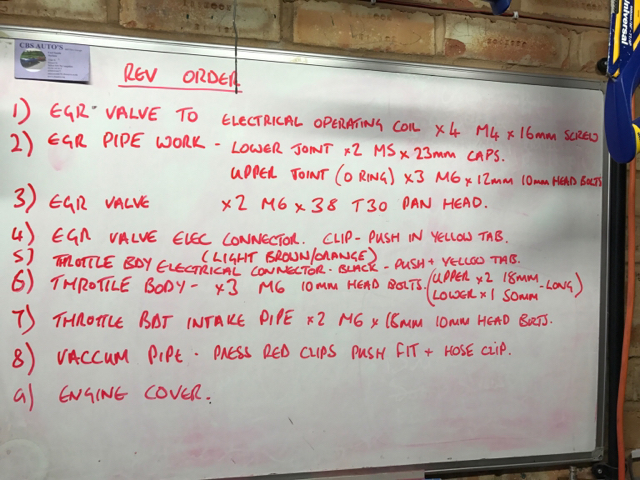 CBS AUTO'S
REV ORDER
1) EGR VALVE TO ELECTRICAL OPERATING COIL x4 M4 x 16mm SCREW
2) EGR PIPE WORK - LOWER JOINT x2 M5 x 23mm CAPS.
UPPER JOINT (O RING) x3 M6 x 12mm 10mm HEAD BOLTS
3) EGR VALVE x2 M6 x 38 T30 PAN HEAD.
4) EGR VALVE ELEC CONNECTOR. CLIP - PUSH IN YELLOW TAB.
(LIGHT BROWN/ORANGE)
5) THROTTLE BDY ELECTRICAL CONNECTOR - BLACK - PUSH + YELLOW TAB.
6) THROTTLE BODY - x3 M6 10mm HEAD BOLTS. (UPPER x2 18mm - LONG)
(LOWER x1 50mm
7) THROTTLE BDT INTAKE PIPE x2 M6 x 18mm 10mm HEAD BOLTS.
8) VACCUM PIPE - PRESS RED CLIPS PUSH FIT + HOSE CLIP.
9) ENGINE COVER.
Universal